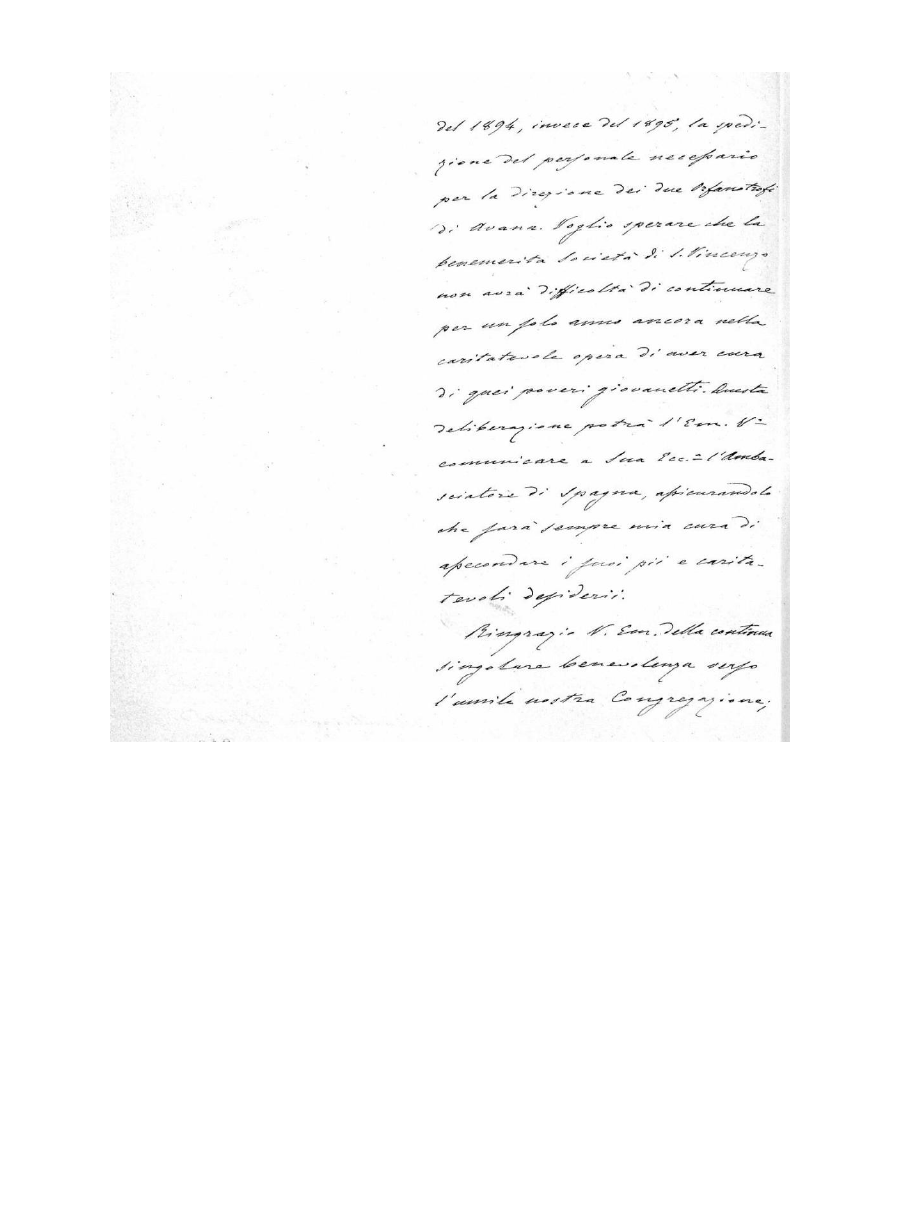 del 1894, invece del 1895, la spedi-
zione del personale necessario
per la direzione dei due Orfanotrofi
di Avana. Voglio sperare che la
benemerita Società di S. Vincenzo
non avrà difficoltà di continuare
per un solo anno ancora nella
caritatevole opera di aver cura
di quei poveri giovanetti. Questa
deliberazione potrà l'Em. Vª
comunicare a Sua Ecc.ª l'Amba-
sciatore di Spagna, assicurandolo
che sarà sempre mia cura di
assecondare i suoi pii e carita-
tevoli desiderii.
Ringrazio V. Em. della continua
singolare benevolenza verso
l'umile nostra Congregazione;